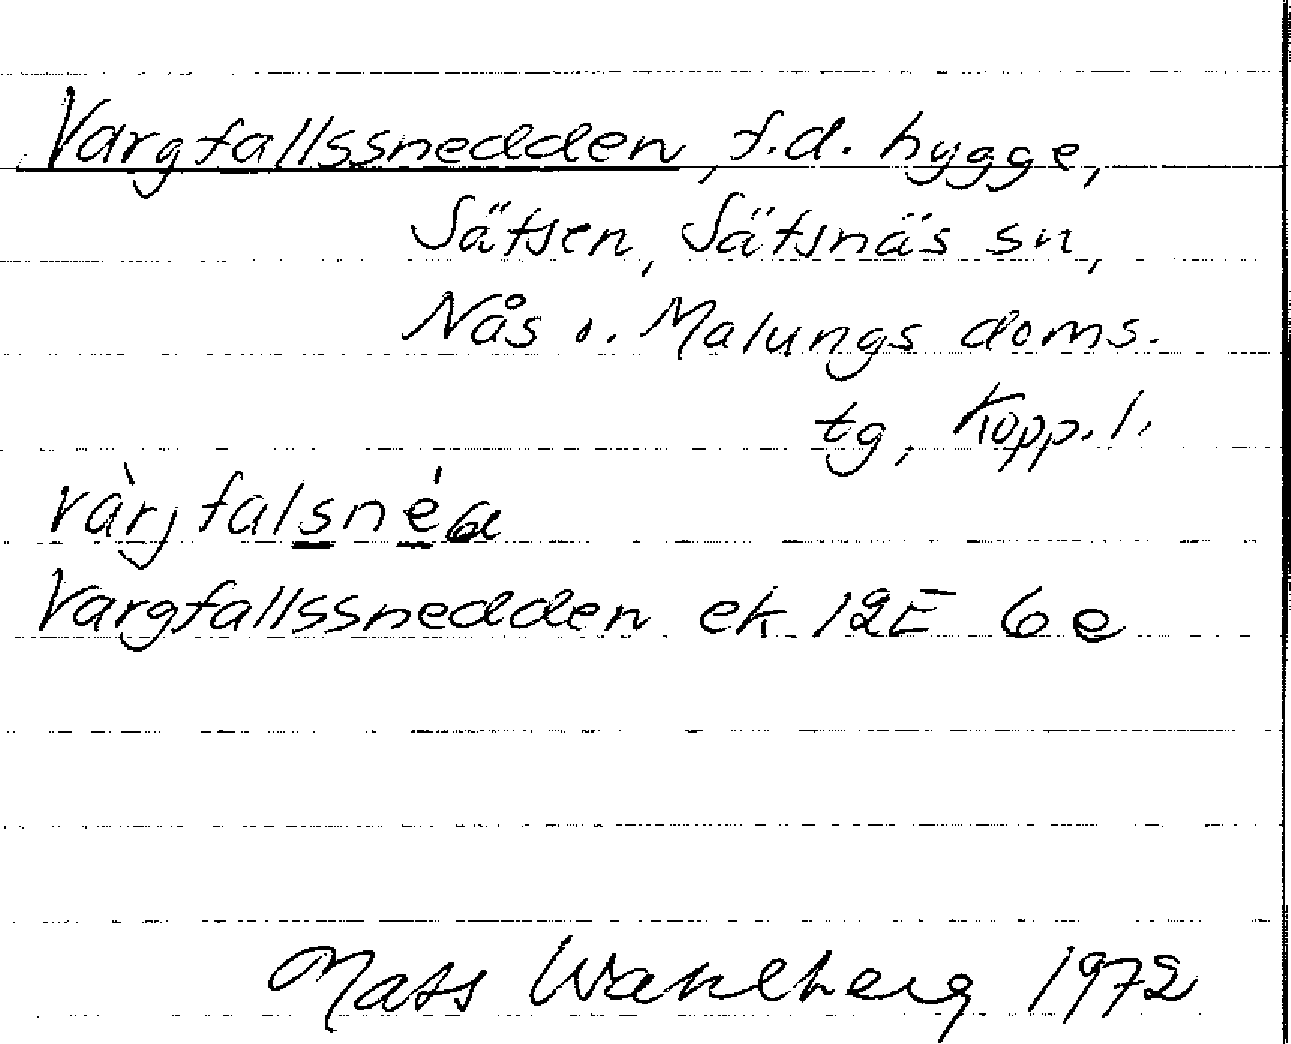 Vargfallssnedden, f.d. hygge,
Sätsen, Sätsnäs sn,
Nås o. Malungs doms.
tg, Kopp. l.
vàrjfalsnéa
Vargfallssnedden ek 12E 6e
Mats Wahlberg 1972